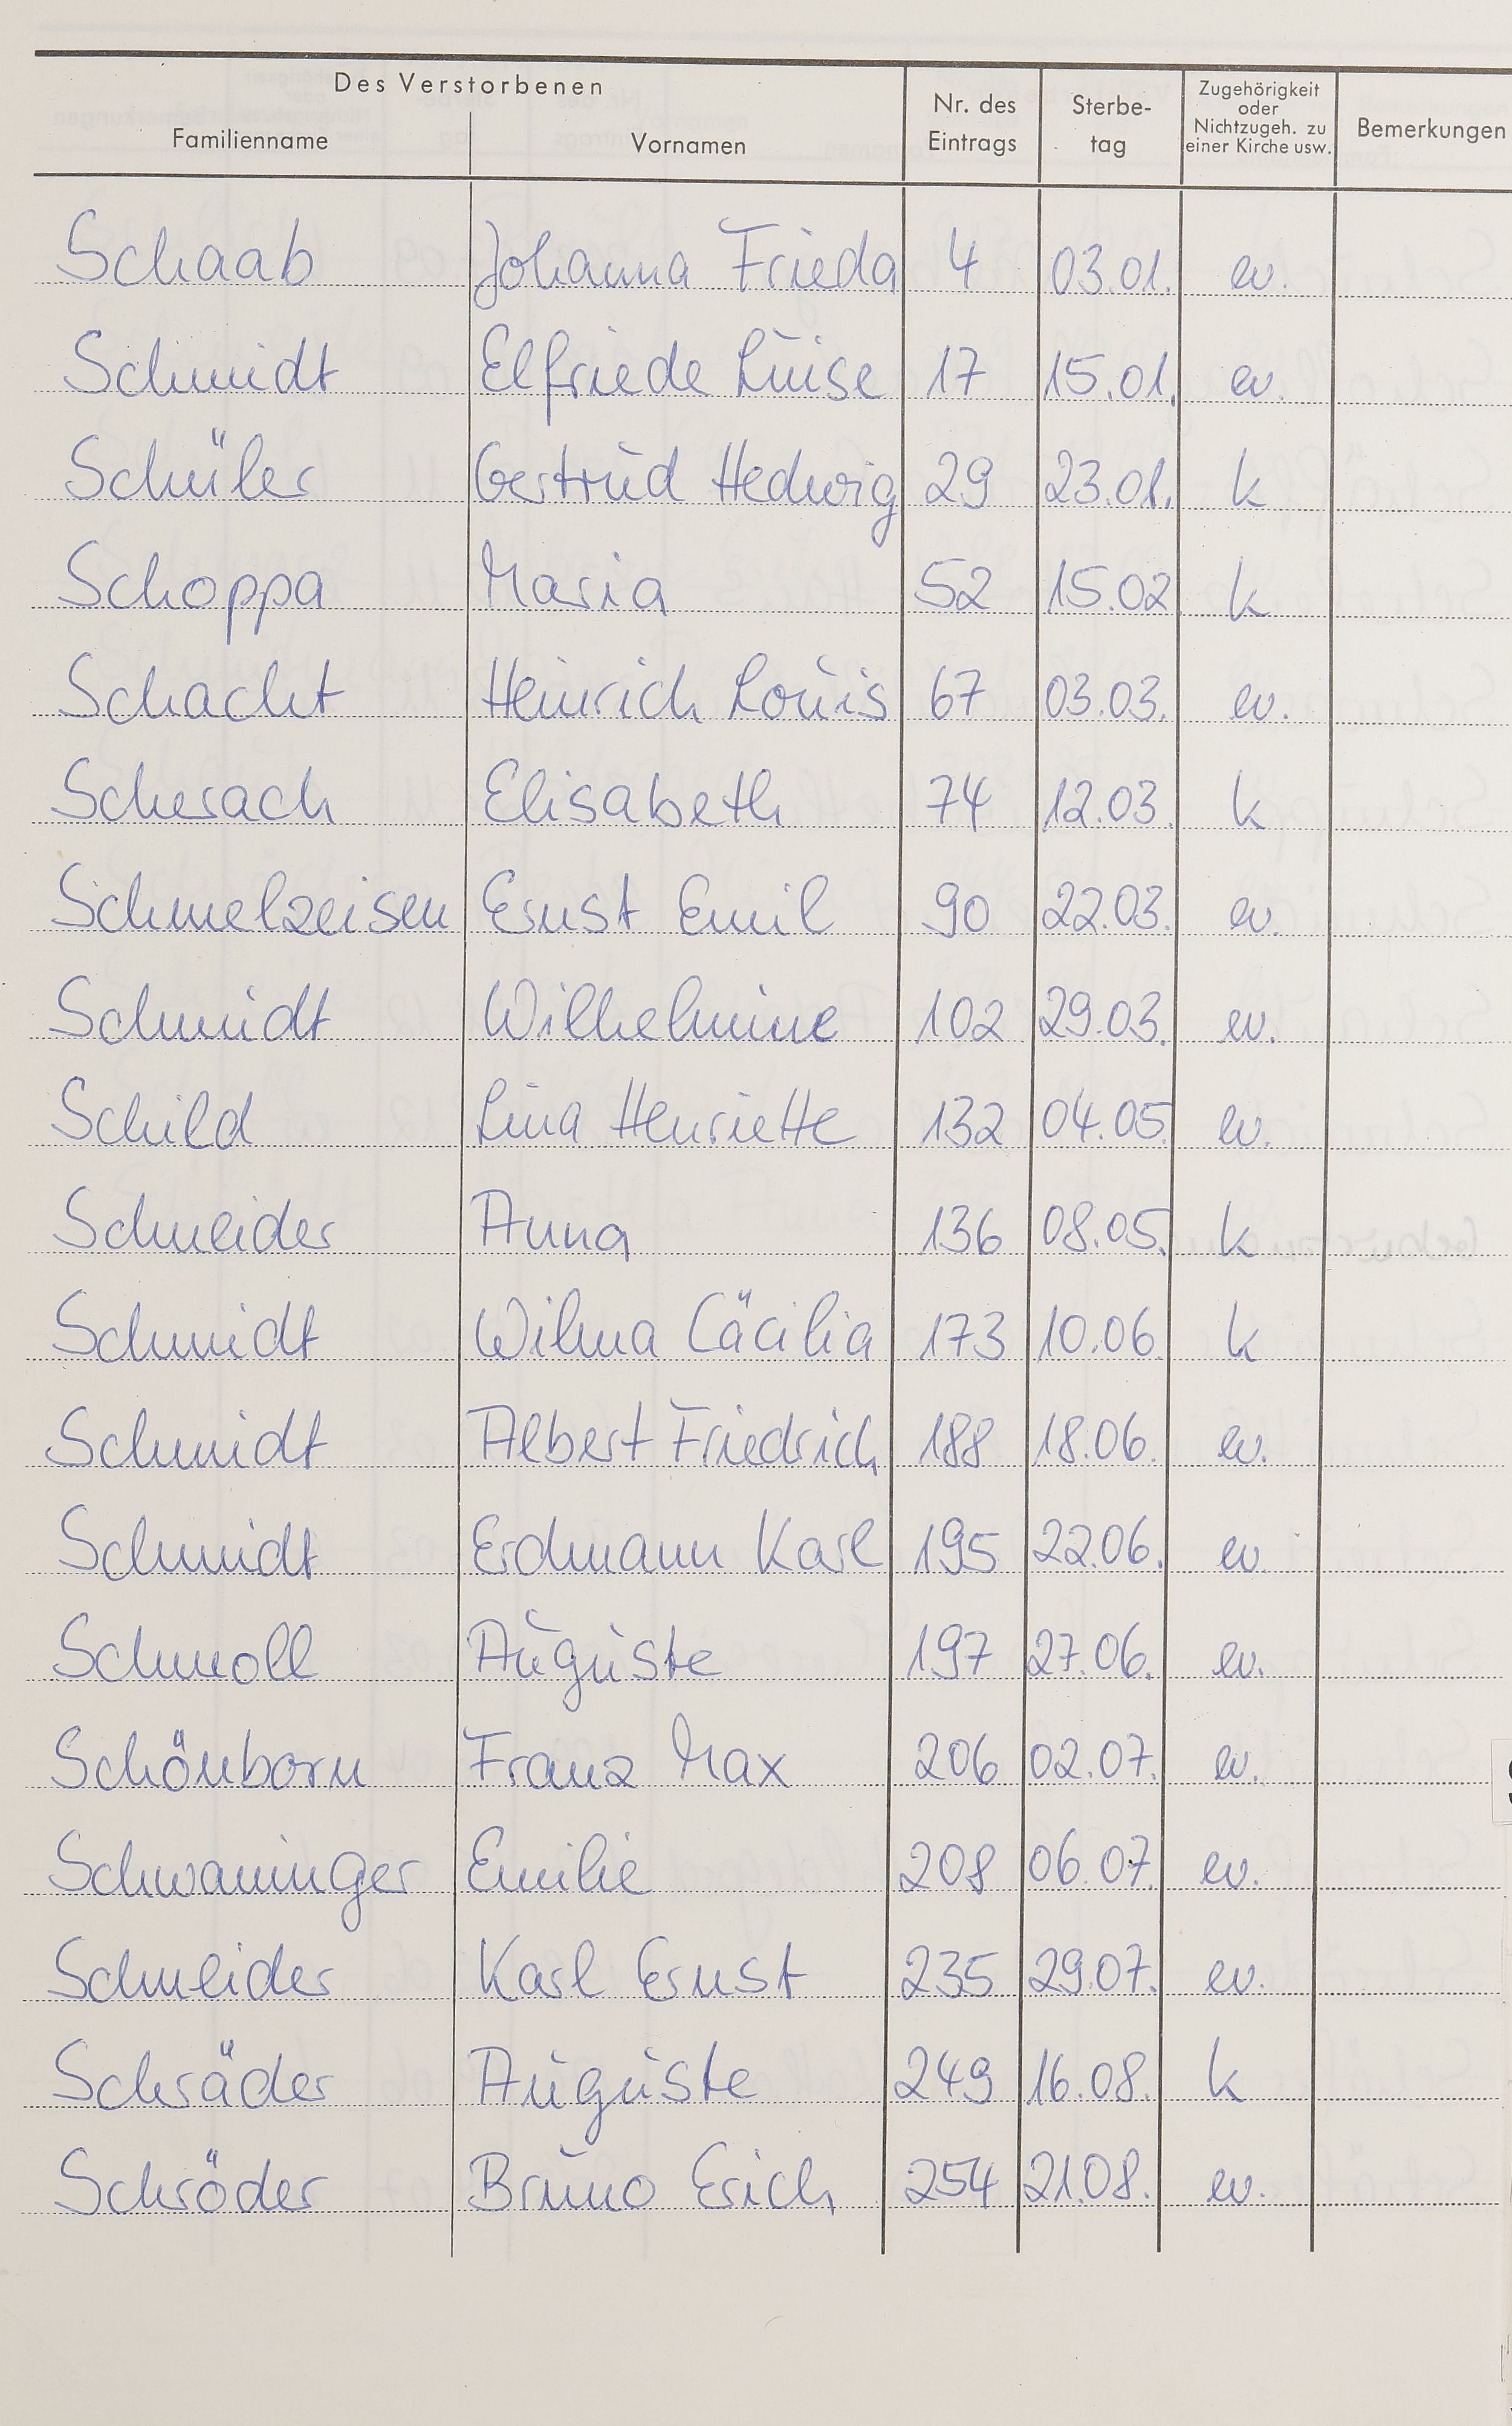 Des Verstorbenen
Familienname Vornamen Nr. des Eintrags Sterbe- tag Zugehörigkeit oder Nichtzugeh. zu einer Kirche usw. Bemerkungen
Schaab Johanna Frieda 4 03.01. ev.
Schmidt Elfriede Luise 17 15.01. ev.
Schüler Gertrud Hedwig 29 23.01. k
Schoppa Maria 52 15.02 k
Schacht Heinrich Louis 67 03.03. ev.
Scherach Elisabeth 74 12.03. k
Schmelzeisen Ernst Emil 90 22.03. ev.
Schmidt Wilhelmine 102 29.03. ev.
Schild Lina Henriette 132 04.05. ev.
Schneider Anna 136 08.05. k
Schmidt Wilma Cäcilia 173 10.06. k
Schmidt Albert Friedrich 188 18.06. ev.
Schmidt Erdmann Karl 195 22.06. ev.
Schmoll Auguste 197 27.06. ev.
Schönborn Franz Max 206 02.07. ev.
Schwaninger Emilie 208 06.07. ev.
Schneider Karl Ernst 235 29.07. ev.
Schräder Auguste 249 16.08. k
Schröder Bruno Erich 254 21.08. ev.